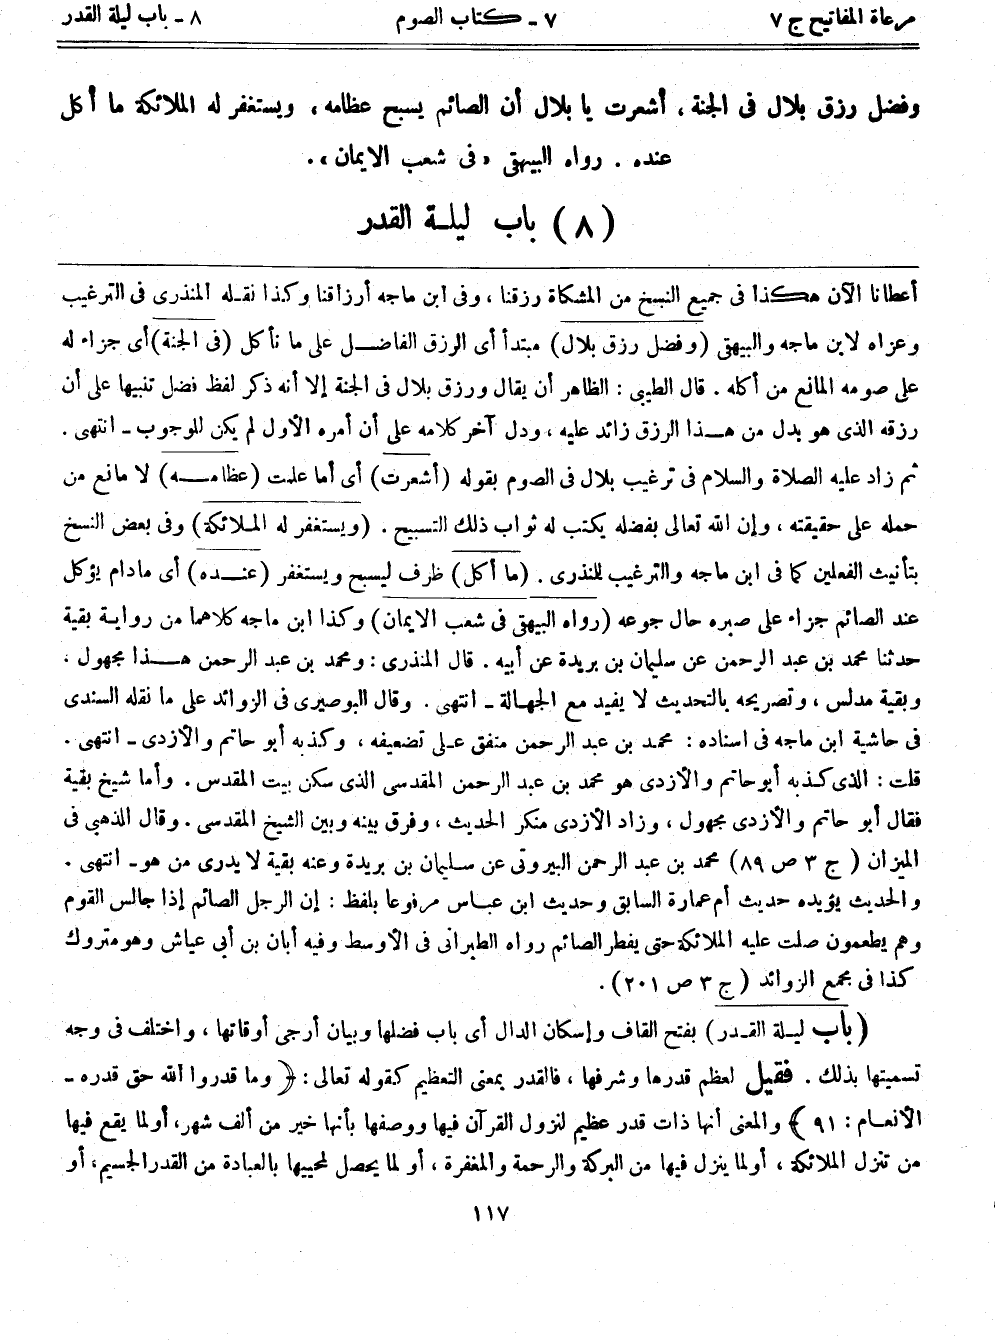 مرعاة المفاتيح ج ٧
٧ ـ كتاب الصوم
٨ ـ باب ليلة القدر
وفضل رزق بلال فى الجنة ، أشعرت يا بلال أن الصائم يسبح عظامه ، ويستغفر له الملائكة ما أكل
عنده . رواه البيهقى «فى شعب الايمان» .
(٨) باب ليلـة القدر
أعطانا الآن هكذا فى جميع النسخ من المشكاة رزقنا ، وفى ابن ماجه أرزاقنا وكذا نقـله المنذرى فى الترغيب
وعزاه لابن ماجه والبيهقى (وفضل رزق بلال) مبتدأ أى الرزق الفاضـل على ما نأكل (فى الجنة) أى جزاء له
على صومه المانع من أكله . قال الطيبى : الظاهر أن يقال ورزق بلال فى الجنة إلا أنه ذكر لفظ فضل تنبيها على أن
رزقه الذى هو بدل من هـذا الرزق زائد عليه ، ودل آخر كلامه على أن أمره الأول لم يكن للوجوب ـ انتهى .
ثم زاد عليه الصلاة والسلام فى ترغيب بلال فى الصوم بقوله (أشعرت) أى أما علمت (عظامـه) لا مانع من
حمله على حقيقته ، وإن الله تعالى بفضله يكتب له ثواب ذلك التسبيح . (ويستغفر له المـلائكة) وفى بعض النسخ
بتأنيث الفعلين كما فى ابن ماجه والترغيب للمنذرى . (ما أكل) ظرف ليسبح ويستغفر (عنـده) أى مادام يؤكل
عند الصائم جزاء على صبره حال جوعه (رواه البيهقى فى شعب الايمان) وكذا ابن ماجه كلاهما من روايـة بقية
حدثنا محمد بن عبد الرحمن عن سليمان بن بريدة عن أبيه . قال المنذرى : ومحمد بن عبد الرحمن هـذا مجهول ،
وبقية مدلس ، وتصريحه بالتحديث لا يفيد مع الجهـالة ـ انتهى . وقال البوصيرى فى الزوائد على ما نقله السندى
فى حاشية ابن ماجه فى اسناده : محمـد بن عبد الرحمن متفق عـلى تضعيفه ، وكذبه أبو حاتم والأزدى ـ انتهى .
قلت : الذى كـذبه أبو حاتم والأزدى هو محمد بن عبد الرحمن المقدسى الذى سكن بيت المقدس . وأما شيخ بقية
فقال أبو حاتم والأزدى مجهول ، وزاد الأزدى منكر الحديث ، وفرق بينه وبين الشيخ المقدسى . وقال الذهبى فى
الميزان ( ج ٣ ص ٨٩) محمد بن عبد الرحمن البيروتى عن سـليمان بن بريدة وعنه بقية لا يدرى من هو ـ انتهى .
والحديث يؤيده حديث أم عمارة السابق وحديث ابن عبـاس مرفوعا بلفظ : إن الرجل الصائم إذا جالس القوم
وهم يطعمون صلت عليه الملائكة حتى يفطر الصائم رواه الطبرانى فى الأوسط وفيه أبان بن أبى عياش وهو متروك
كذا فى مجمع الزوائد ( ج ٣ ص ٢٠١) .
(باب ليـلة القـدر) بفتح القاف وإسكان الدال أى باب فضلها وبيان أرجى أوقاتها ، واختلف فى وجه
تسميتها بذلك . فقيل لعظم قدرها وشرفها ، فالقدر بمعنى التعظيم كقوله تعالى : ﴿ وما قدروا الله حق قدره ـ
الأنعـام : ٩١ ﴾ والمعنى أنها ذات قدر عظيم لنزول القرآن فيها ووصفها بأنها خير من ألف شهر ، أولما يقع فيها
من تنزل الملائكة ، أولما ينزل فيها من البركة والرحمة والمغفرة ، أو لما يحصل لمحييها بالعبادة من القدر الجسيم ، أو
١١٧